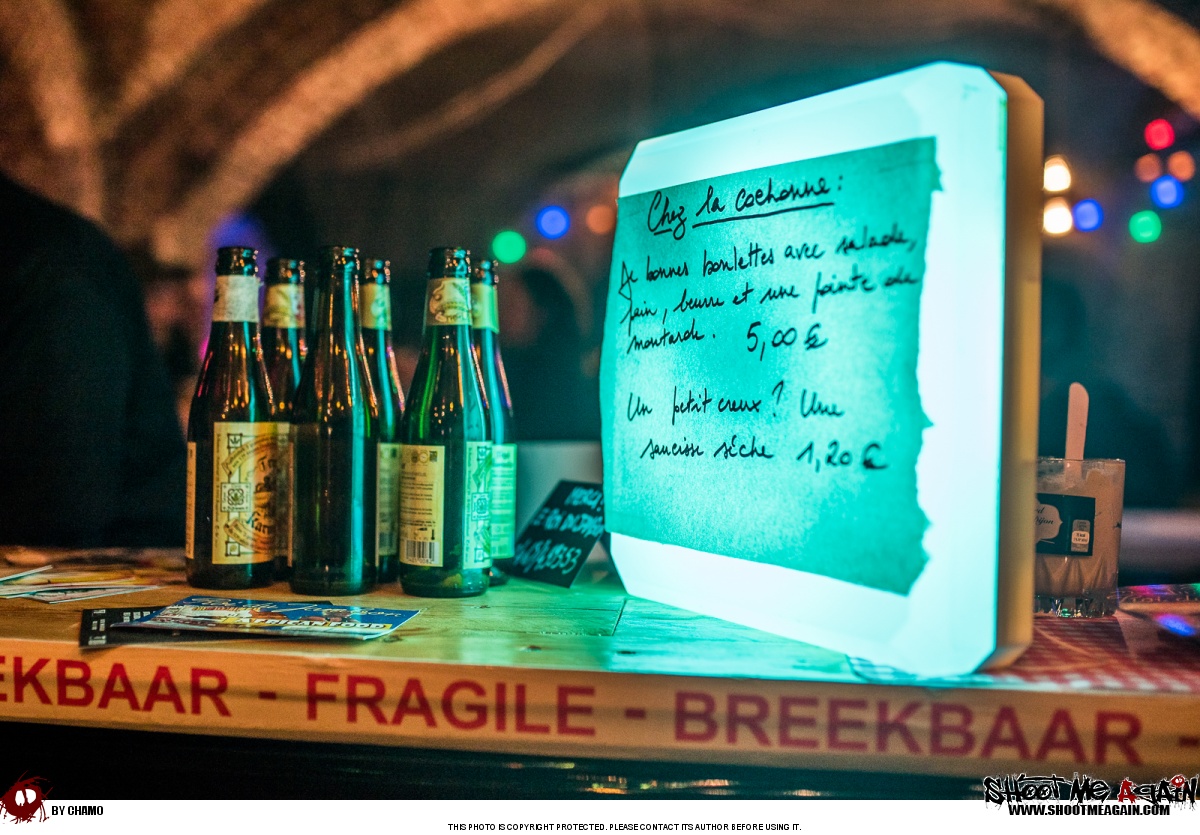 Chez la cochonne :
De bonnes boulettes avec salade,
pain, beurre et une pointe de
moutarde. 5,00 €
Un petit creux ? Une
saucisse sèche 1,20 €
EKBAAR - FRAGILE - BREEKBAAR -
BY CHAMO
SHOOT ME AGAIN
WWW.SHOOTMEAGAIN.COM
THIS PHOTO IS COPYRIGHT PROTECTED. PLEASE CONTACT ITS AUTHOR BEFORE USING IT.